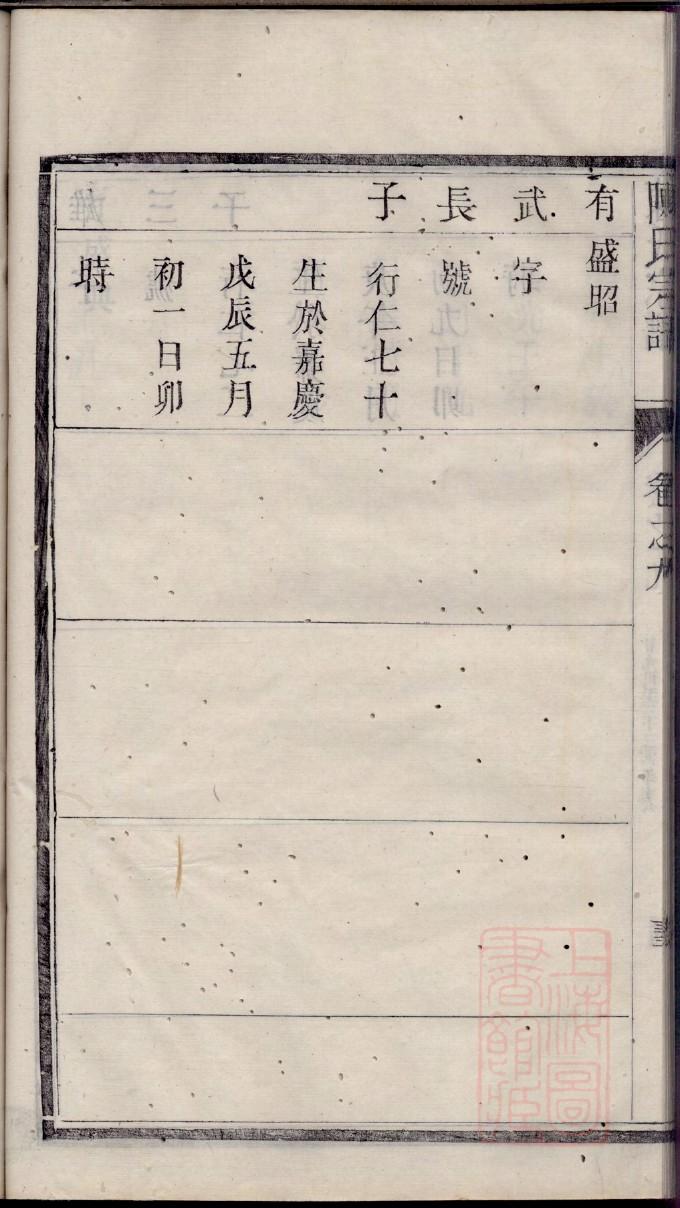 陳氏宗譜
卷之九
有盛昭
武字
長號
子行仁七十
生於嘉慶
戊辰五月
初一日卯
時
上海圖
書館臧